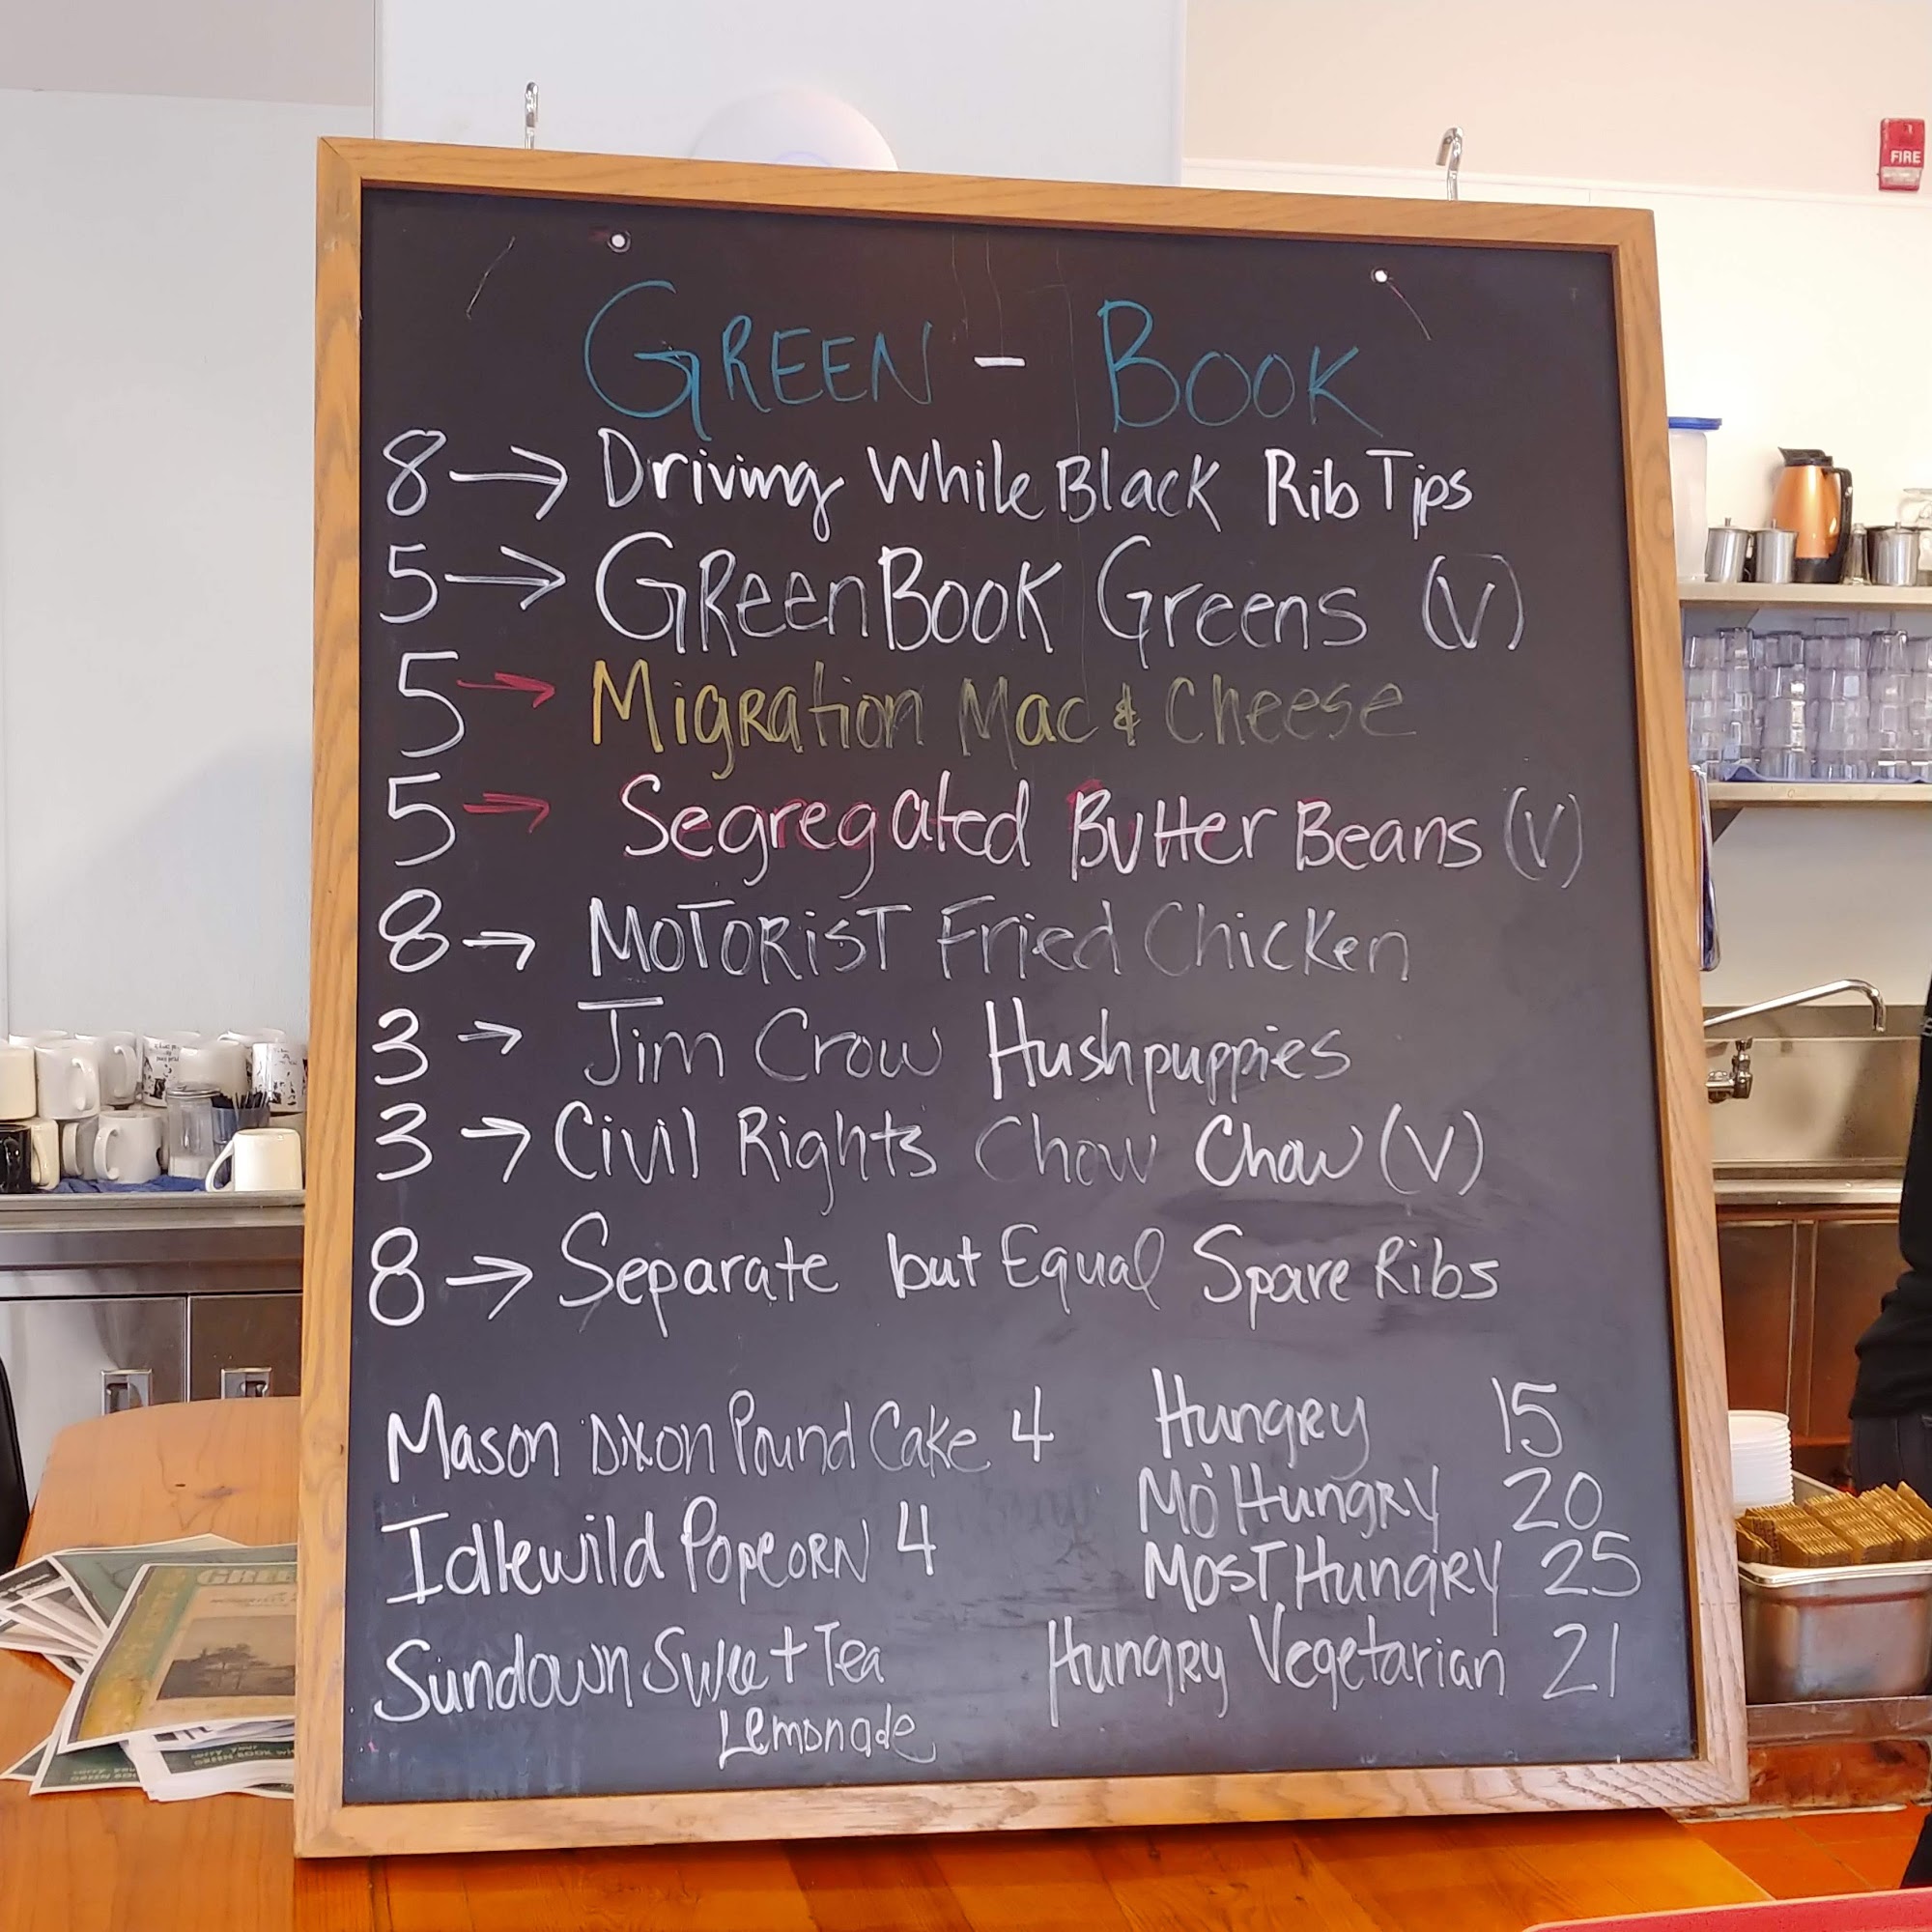 FIRE
GREEN - BOOK
8 → Driving While Black Rib Tips
5 → GReen BOOK Greens (V)
5 → Migration Mac & Cheese
5 → Segregated Butter Beans (V)
8 → MOTORiST Fried Chicken
3 → Jim Crow Hushpuppies
3 → Civil Rights Chow Chow (V)
8 → Separate but Equal Spare Ribs
Mason Dixon Pound Cake 4
Idlewild PopcoRN 4
Sundown Sweet Tea
Lemonade
HungRy 15
Mo' HungRy 20
MosT HungRy 25
HungRy Vegetarian 21
GREE